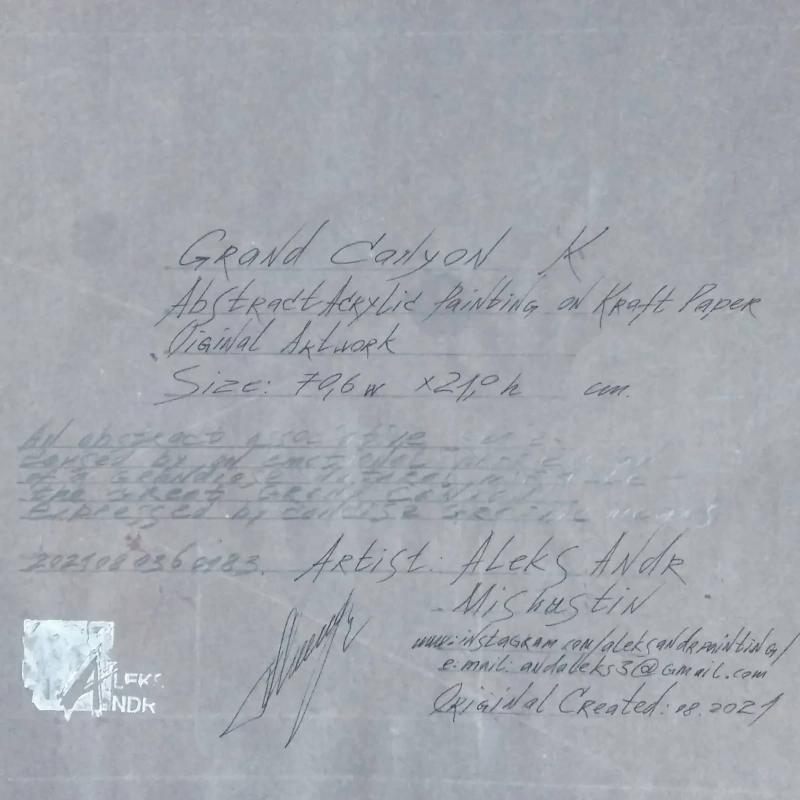 Grand Canyon K
Abstract Acrylic Painting on Kraft Paper
Original Artwork
Size: 70,6 w x 21,0 h cm.
An abstract associative
by an
of a grandiose natural
the Great Grand Canyon
Expressed by means
2021080360183. Artist: Aleks Andr
Mishustin
www.instagram.com/aleksandrpainting/
e-mail: andaleks3@gmail.com
Original Created: 08.2021
ALEKS
ANDR